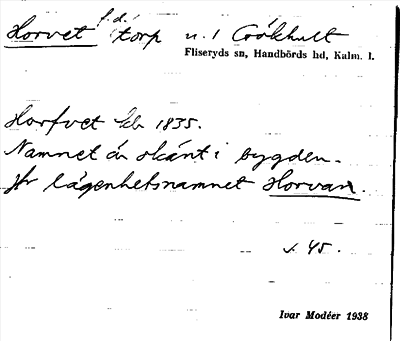 Horvet f.d. torp u. 1 Crökhult
Fliseryds sn, Handbörds hd, Kalm. l.
Horfvet Gb 1835.
Namnet är okänt i bygden.
Jfr lägenhetsnamnet Horvan.
s. 45.
Ivar Modéer 1938